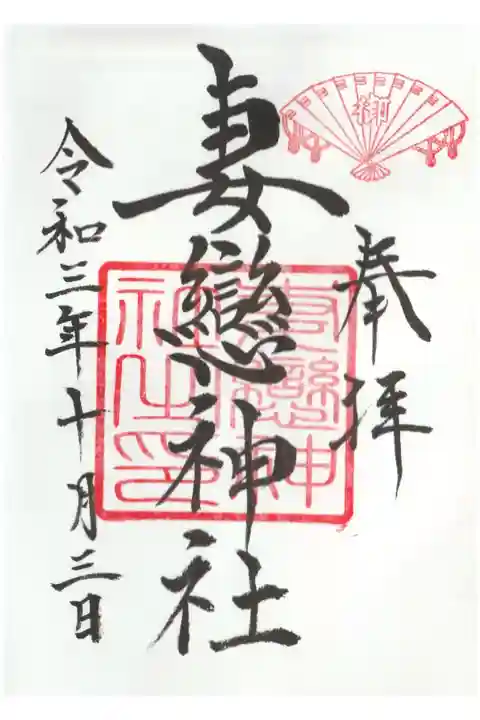 御
奉拝
妻戀神社
妻戀神
社之印
令和三年十月三日